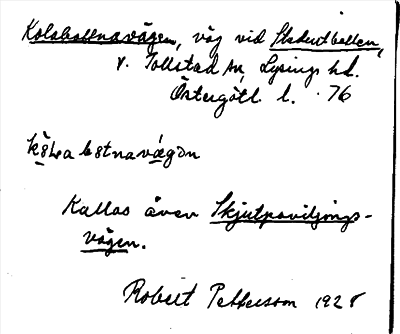 Kolabottnavägen, väg vid Stadsutbotten,
V. Tollstad sn, Lysings hd.
Östergötl. l. 76
Kallas även Skjutpaviljongs-
vägen.
Robert Pettersson 1928